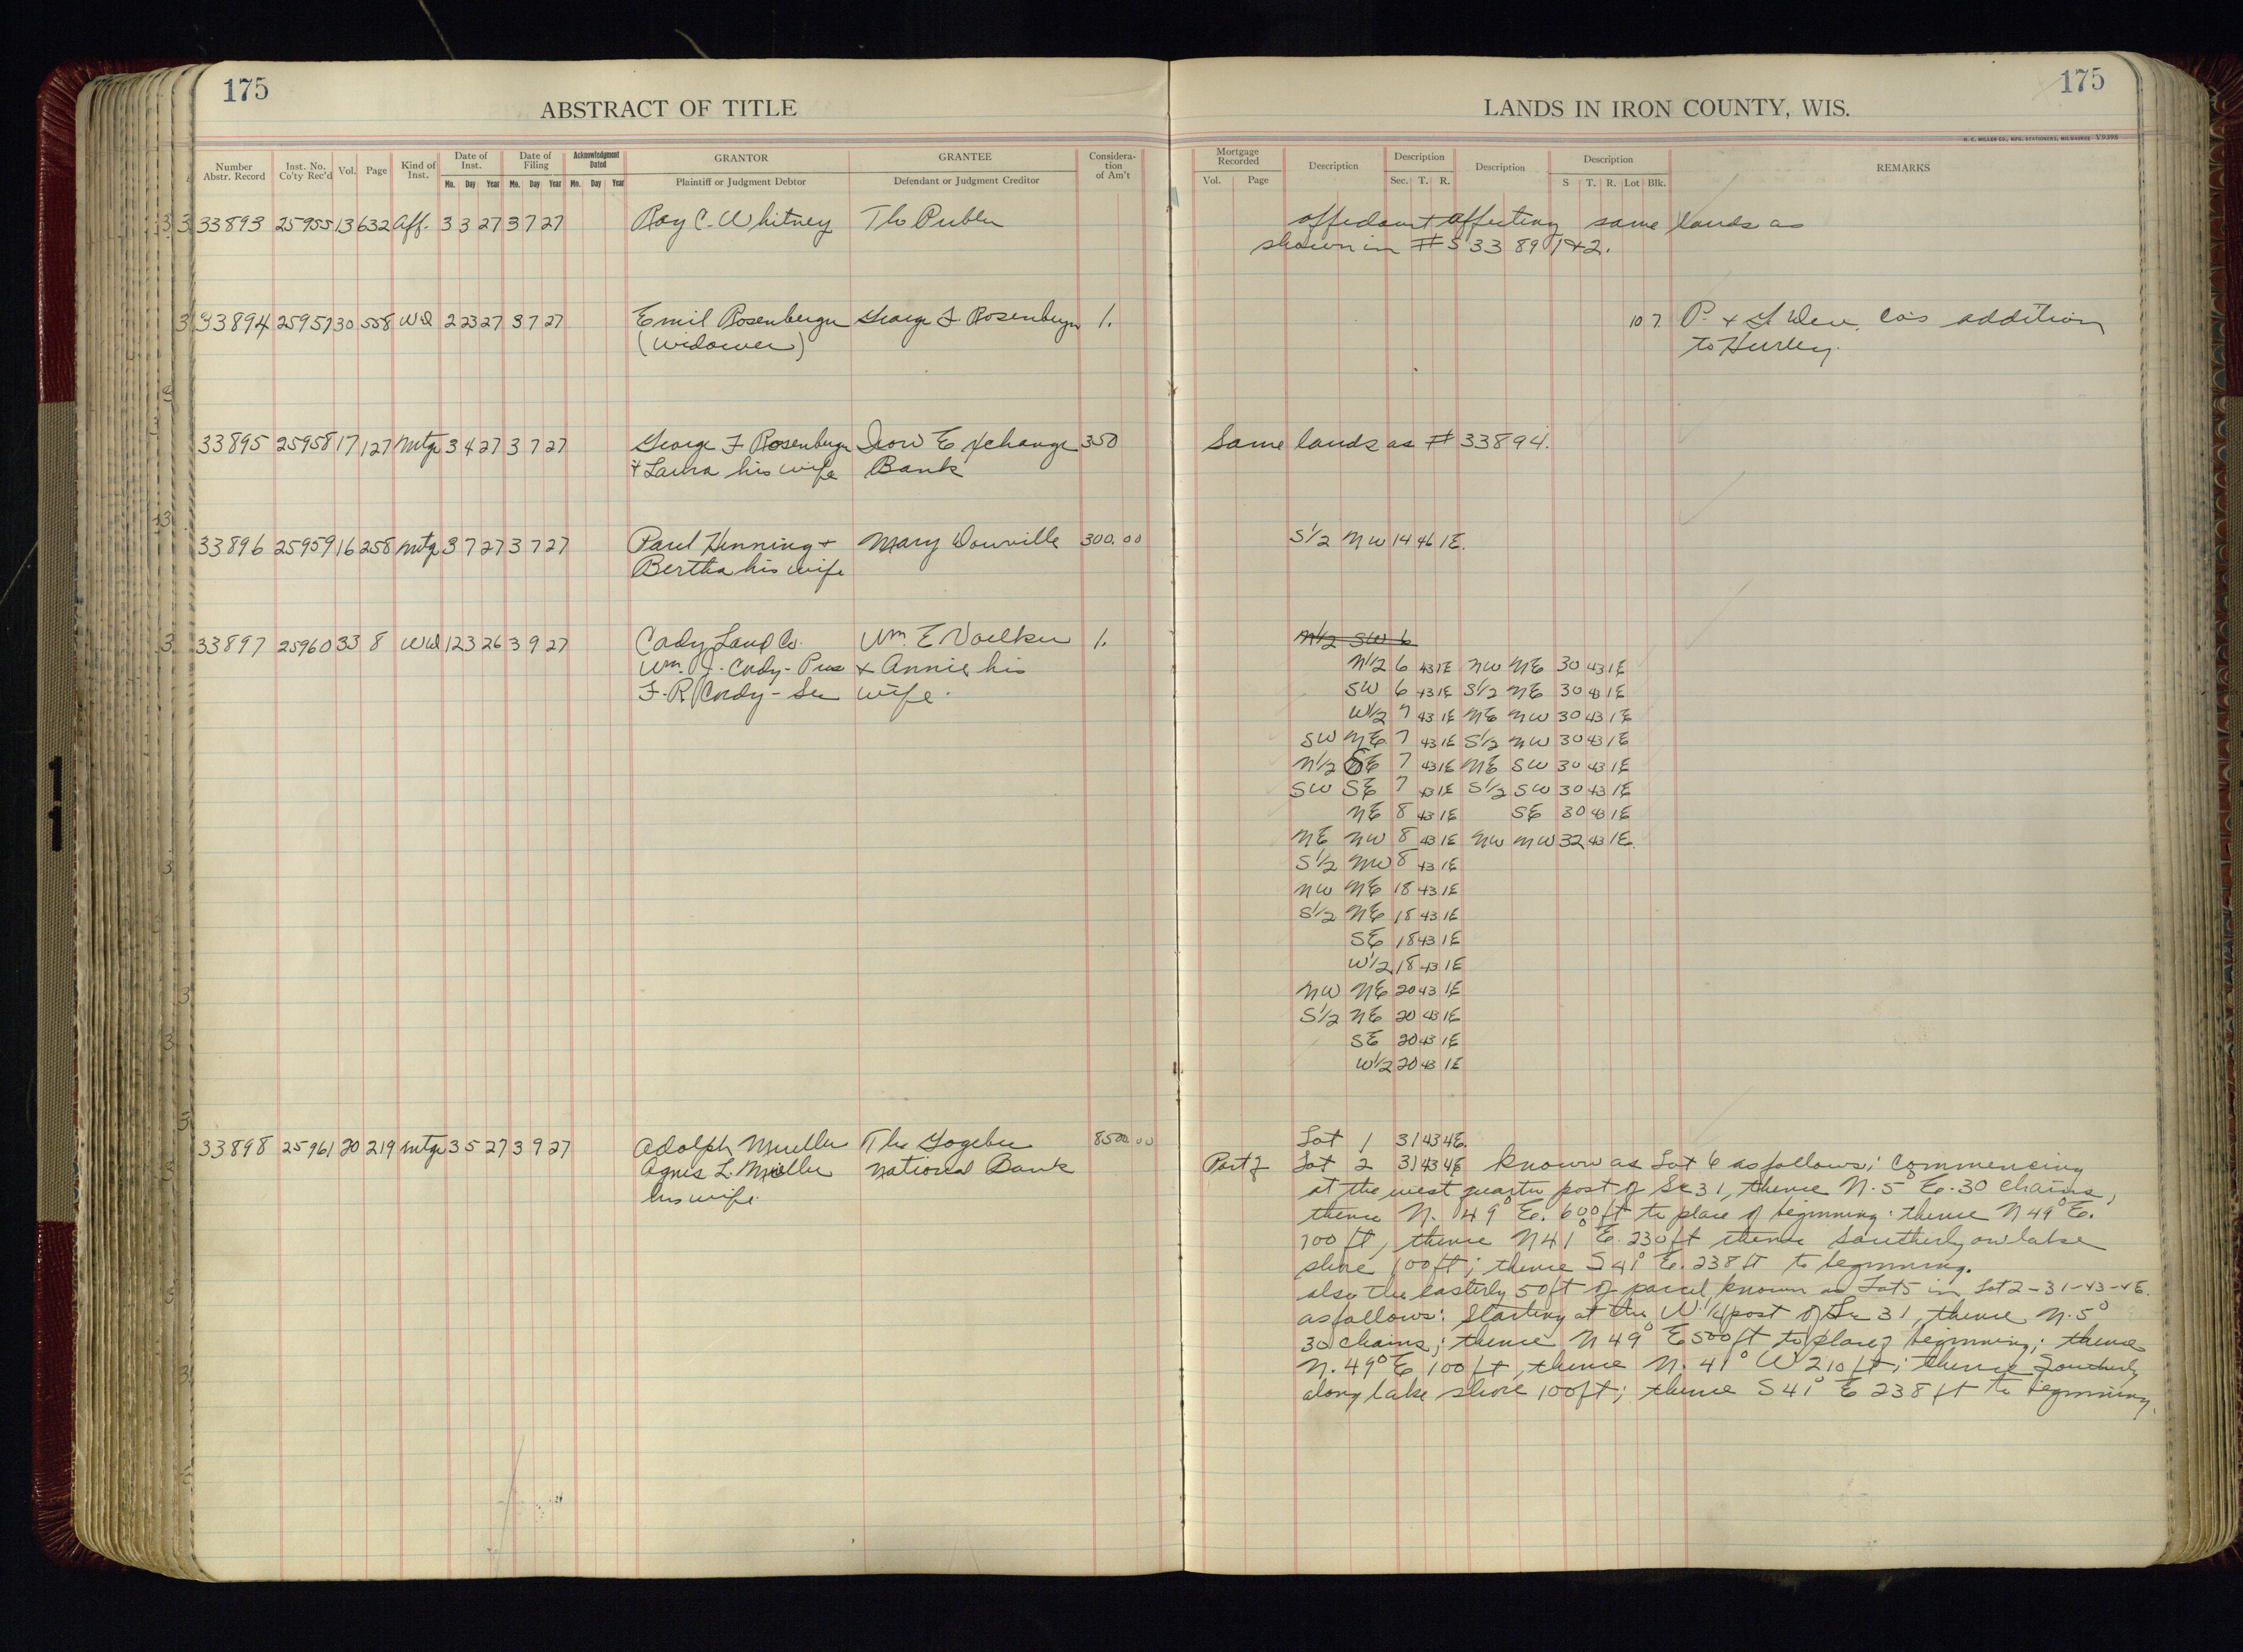 175
ABSTRACT OF TITLE
Number Abstr. Record Inst. No. Co'ty Rec'd Vol. Page Kind of Inst. Date of Inst. Mo. Day Year Date of Filing Mo. Day Year Acknowledgment Dated Mo. Day Year GRANTOR Plaintiff or Judgment Debtor GRANTEE Defendant or Judgment Creditor Considera-tion of Am't
33893 25955 13 632 Aff. 3 3 27 3 7 27 Roy C. Whitney The Public
33894 25957 30 558 WD 2 23 27 3 7 27 Emil Rosenberger George F. Rosenberger 1.
(widower)
33895 25958 17 127 Mtge 3 4 27 3 7 27 George F Rosenberger Iron Exchange 350
& Laura his wife Bank
33896 25959 16 258 Mtge 3 7 27 3 7 27 Paul Henning & Mary Douville 300.00
Bertha his wife
33897 25960 33 8 WD 12 3 26 3 9 27 Cady Land Co. Wm. E Voelker 1.
Wm. J. Cady - Pres & Annie his
F. R. Cady - Sec wife.
33898 25961 20 219 Mtge 3 5 27 3 9 27 Adolph Mueller The Gogebic 8500.00
Agnes L. Mueller National Bank
his wife.
175
LANDS IN IRON COUNTY, WIS.
H. C. MILLER CO., MFG. STATIONERS, MILWAUKEE V9398
Mortgage Recorded Vol. Page Description Description Sec. T. R. Description Description S T. R. Lot Blk. REMARKS
Affidavit affecting same lands as
shown in #s 33891 & 2.
107. P. & G. Dev. Co's addition
to Hurley.
Same lands as # 33894.
S1/2 NW 14 46 1E.
N1/2 SW 6
N1/2 6 43 1E NW NE 30 43 1E
SW 6 43 1E S1/2 NE 30 43 1E
W1/2 7 43 1E NE NW 30 43 1E
SW NE 7 43 1E S1/2 NW 30 43 1E
N1/2 SE 7 43 1E NE SW 30 43 1E
SW SE 7 43 1E S1/2 SW 30 43 1E
NE 8 43 1E SE 30 43 1E
NE NW 8 43 1E NW NW 32 43 1E.
S1/2 NW 8 43 1E
NW NE 18 43 1E
S1/2 NE 18 43 1E
SE 18 43 1E
W1/2 18 43 1E
NW NE 20 43 1E
S1/2 NE 20 43 1E
SE 20 43 1E
W1/2 20 43 1E
Lot 1 31 43 4E.
Part of Lot 2 31 43 4E known as Lot 6 as follows; Commencing
at the west quarter post of Sec 31, thence N. 5° E. 30 chains,
thence N. 49° E. 600 ft to place of beginning; thence N 49° E.
100 ft, thence N 41° E. 230 ft thence Southerly on lake
shore 100 ft; thence S 41° E. 238 ft to beginning.
also the easterly 50 ft of parcel known as Lot 5 in Lot 2-31-43-4E.
as follows: Starting at the W. 1/4 post of Sec 31, thence N. 5°
30 chains; thence N 49° E 500 ft to place of beginning; thence
N. 49° E 100 ft, thence N. 41° W 210 ft; thence Southerly
along lake shore 100 ft; thence S 41° E 238 ft to beginning.